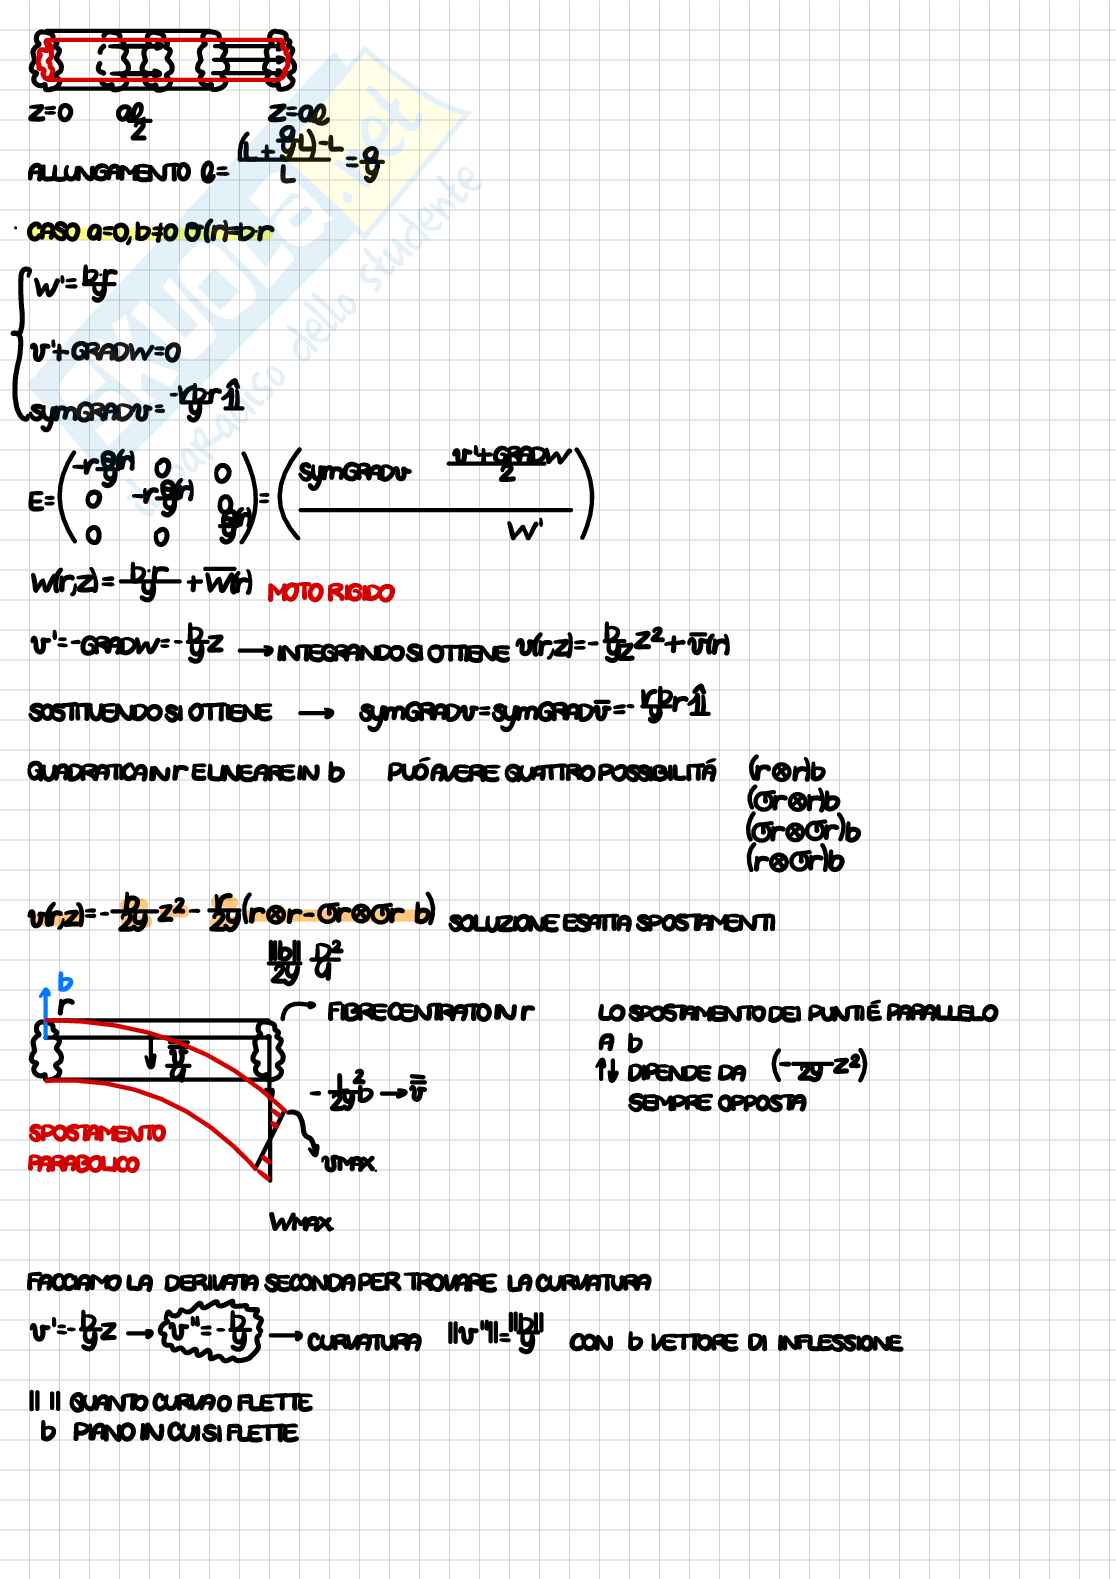 z=0 al/2 z=al
ALLUNGAMENTO l= ((L + a/y L) - L)/L = a/y
CASO a=0, b≠0 σ(r)=b·r
W'= b·r/y
v'+GRADW=0
symGRADv= -νb·r/y 1̂
E= (-ν σ(r)/y 0 0
0 -ν σ(r)/y 0
0 0 σ(r)/y) = (symGRADv (v'+GRADW)/2
W')
W(r,z) = b·r/y + W̅(r) MOTO RIGIDO
v'=-GRADW=-b/y z → INTEGRANDO SI OTTIENE v(r,z)=-b/y2 z²+v̅(r)
SOSTITUENDO SI OTTIENE → symGRADv=symGRADv̅=- νb·r/y 1̂
QUADRATICA IN r E LINEARE IN b PUÓ AVERE QUATTRO POSSIBILITÁ (r⊗r)b
(σr⊗r)b
(σr⊗σr)b
(r⊗σr)b
v(r,z)=-b/2y z² - ν/2y (r⊗r-σr⊗σr b) SOLUZIONE ESATTA SPOSTAMENTI
||b||/2y
b
r
FIBRE CENTRATO IN r LO SPOSTAMENTO DEI PUNTI É PARALLELO
A b
- l²/2y b → v̿ ↑↓ DIPENDE DA (-/2y z²)
SEMPRE OPPOSTA
SPOSTAMENTO
PARABOLICO
vMAX
WMAX
FACCIAMO LA DERIVATA SECONDA PER TROVARE LA CURVATURA
v'=-b/y z → v''=-b/y → CURVATURA ||v''||=||b||/y CON b VETTORE DI INFLESSIONE
|| || QUANTO CURVA O FLETTE
b PIANO IN CUI SI FLETTE
SKUOLA.net
paradiso dello studente